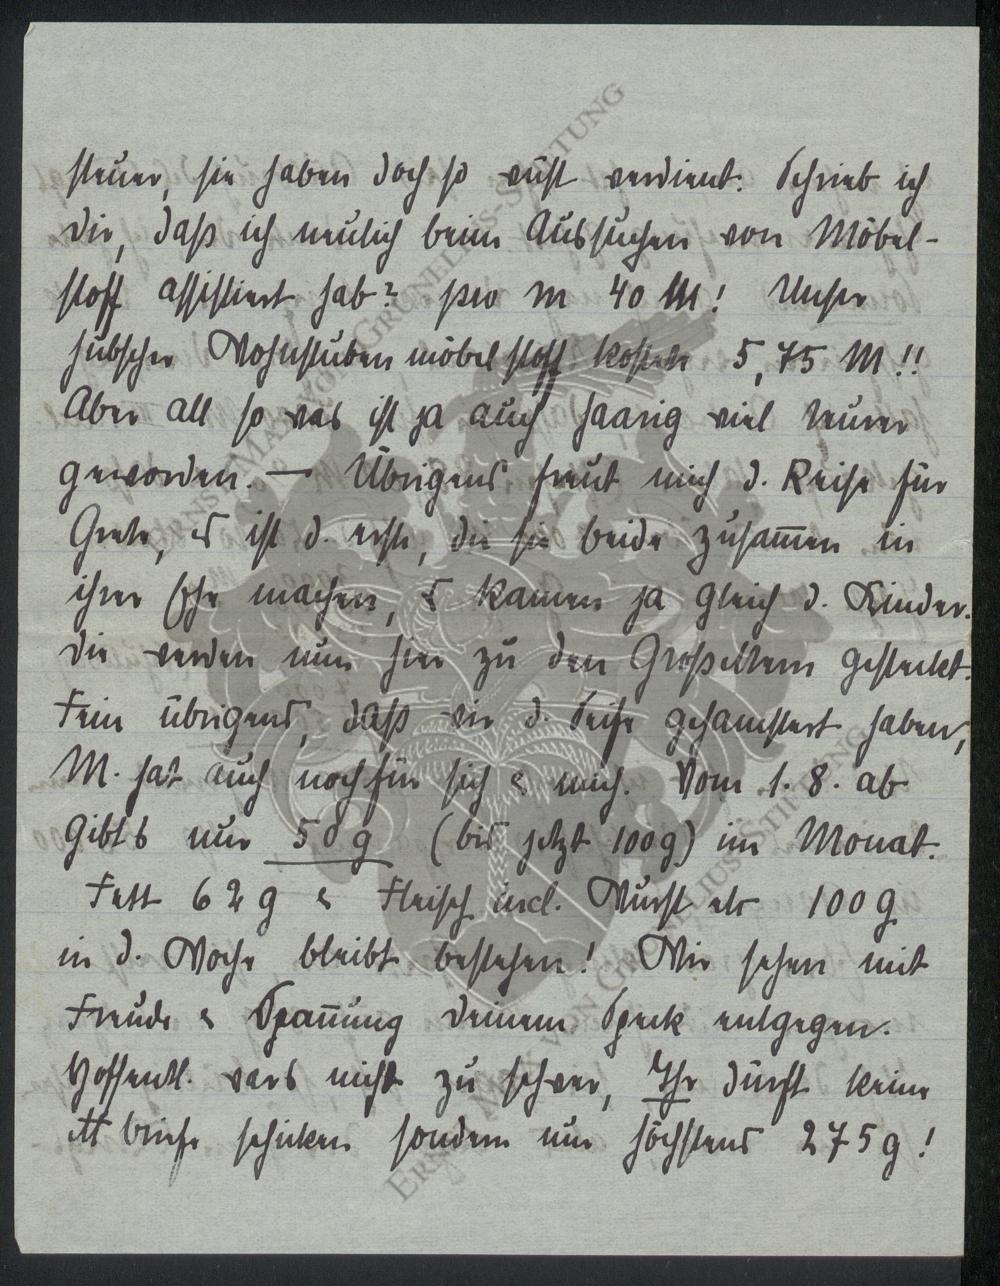 steuer, sie haben doch so wüst verdient. Schrieb ich
Dir, daß ich neulich beim Aussuchen von Möbel-
stoff assistiert hab? pro m 40 M! Unser
hübscher Wohnstubenmöbelstoff kostete 5,75 M!!
Aber all so was ist ja auch haarig viel teurer
geworden. — Übrigens freut mich d. Reise für
Grete, es ist d. erste, die sie beide zusam̅en in
ihrer Ehe machen, es kamen ja gleich d. Kinder.
Die werden nun hier zu den Großeltern gesteckt.
Fein übrigens, daß wir d. Seife gehamstert haben,
M. hat auch noch für sich & mich. Vom 1. 8. ab
gibts nur 50 g (bis jetzt 100 g) im Monat.
Fett 62 g & Fleisch incl. Wurst etc 100 g
in d. Woche bleibt bestehen! Wir sehen mit
Freude & Span̅ung Deinem Speck entgegen.
Hoffentl. wars nicht zu schwer, Ihr dürft keine
℔ briefe schicken sondern nur höchstens 275 g!
ERNST MAX VON GRUNELIUS-STIFTUNG
ERNST MAX VON GRUNELIUS-STIFTUNG